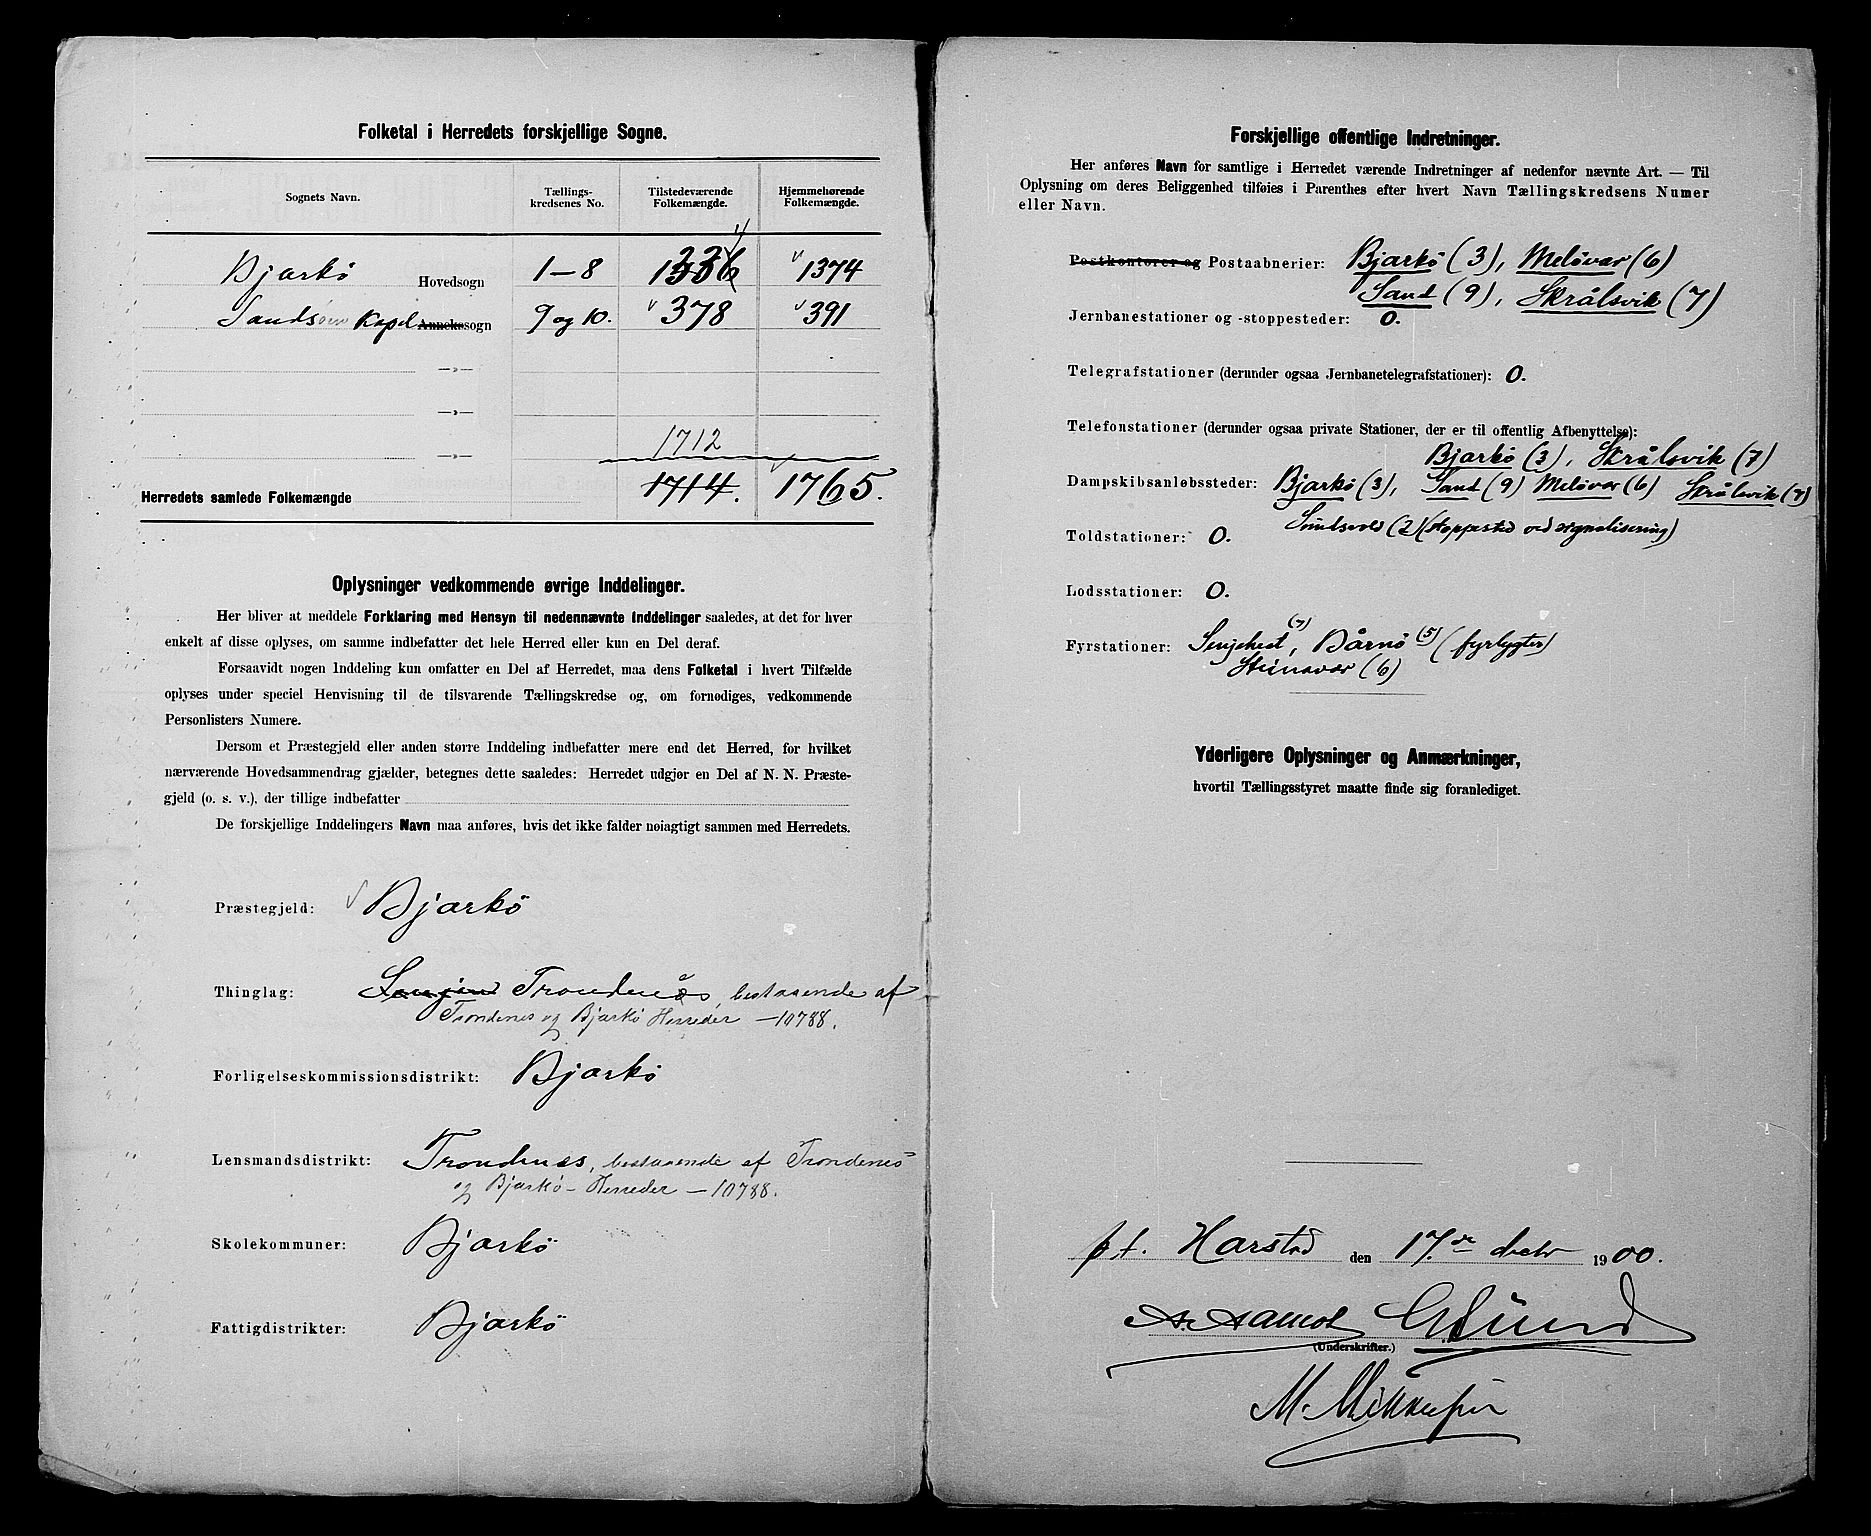 Folketal i Herredets forskjellige Sogne.
Sognets Navn. Tællings-kredsenes No. Tilstedeværende Folkemængde. Hjemmehørende Folkemængde.
4
Bjarkö Hovedsogn 1-8 1336 1374
Sandsøen Kapel Annekssogn 9 og 10. 378 391
—„—
—„—
1712
—„—
Herredets samlede Folkemængde 1714. 1765.
Oplysninger vedkommende øvrige Inddelinger.
Her bliver at meddele Forklaring med Hensyn til nedennævnte Inddelinger saaledes, at det for hver
enkelt af disse oplyses, om samme indbefatter det hele Herred eller kun en Del deraf.
Forsaavidt nogen Inddeling kun omfatter en Del af Herredet, maa dens Folketal i hvert Tilfælde
oplyses under speciel Henvisning til de tilsvarende Tællingskredse og, om fornødiges, vedkommende
Personlisters Numere.
Dersom et Præstegjeld eller anden større Inddeling indbefatter mere end det Herred, for hvilket
nærværende Hovedsammendrag gjælder, betegnes dette saaledes: Herredet udgjør en Del af N. N. Præste-
gjeld (o. s. v.), der tillige indbefatter
De forskjellige Inddelingers Navn maa anføres, hvis det ikke falder nøiagtigt sammen med Herredets.
Præstegjeld: Bjarkö
Thinglag: Senjens Trondenæs, bestaaende af
Trondenes og Bjarkö Herreder — 10788.
Forligelseskommissionsdistrikt: Bjarkö
Lensmandsdistrikt: Trondenæs, bestaaende af Trondenes
og Bjarkö-Herreder — 10788.
Skolekommuner: Bjarkö
Fattigdistrikter: Bjarkö
Forskjellige offentlige Indretninger.
Her anføres Navn for samtlige i Herredet værende Indretninger af nedenfor nævnte Art. — Til
Oplysning om deres Beliggenhed tilføies i Parenthes efter hvert Navn Tællingskredsens Numer
eller Navn.
Postkontorer og Postaabnerier: Bjarkö (3), Melövær (6)
Sand (9), Skrålsvik (7)
Jernbanestationer og -stoppesteder: 0.
Telegrafstationer (derunder ogsaa Jernbanetelegrafstationer): 0.
Telefonstationer (derunder ogsaa private Stationer, der er til offentlig Afbenyttelse):
Bjarkö (3), Skrålsvik (7)
Dampskibsanløbssteder: Bjarkö (3), Sand (9) Melövær (6) Skrålsvik (7)
(2) (stoppested ved signalisering)
Toldstationer: 0.
Lodsstationer: 0.
Fyrstationer: Senjehest (7), Dårnö (5) (fyrlygter)
Steinavær (6)
Yderligere Oplysninger og Anmærkninger,
hvortil Tællingsstyret maatte finde sig foranlediget.
p.t. Harstad den 17.de decbr 1900.
(Underskrifter.)
M. Mikkelsen